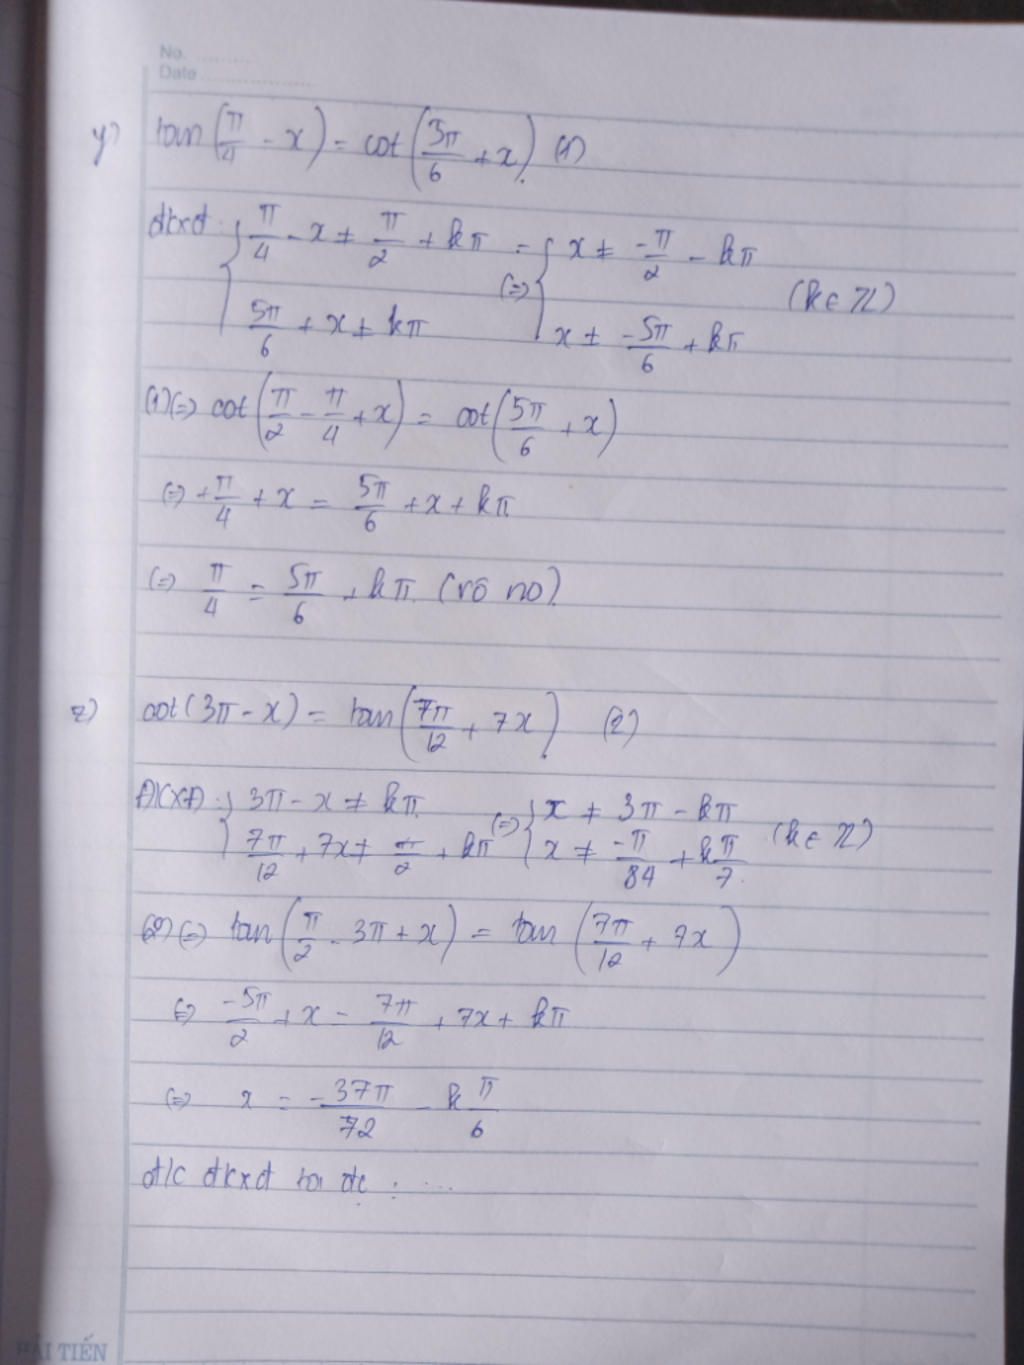 No. ..........
Date ....................
y) tan(π/4 - x) = cot(5π/6 + x). (1)
đkxđ: { π/4 - x ≠ π/2 + kπ (=) { x ≠ -π/2 - kπ (k∈Z)
5π/6 + x ≠ kπ x ≠ -5π/6 + kπ
(1) (=) cot(π/2 - π/4 + x) = cot(5π/6 + x)
(=) +π/4 + x = 5π/6 + x + kπ
(=) π/4 = 5π/6 + kπ. (vô no).
z) cot(3π - x) = tan(7π/12 + 7x). (2)
ĐKXĐ: { 3π - x ≠ kπ (=) { x ≠ 3π - kπ (k∈Z)
7π/12 + 7x ≠ π/2 + kπ x ≠ -π/84 + kπ/7.
(2) (=) tan(π/2 - 3π + x) = tan(7π/12 + 7x)
(=) -5π/2 + x = 7π/12 + 7x + kπ
(=) x = -37π/72 - kπ/6
đ/c đkxđ ta đc: ...
HẢI TIẾN